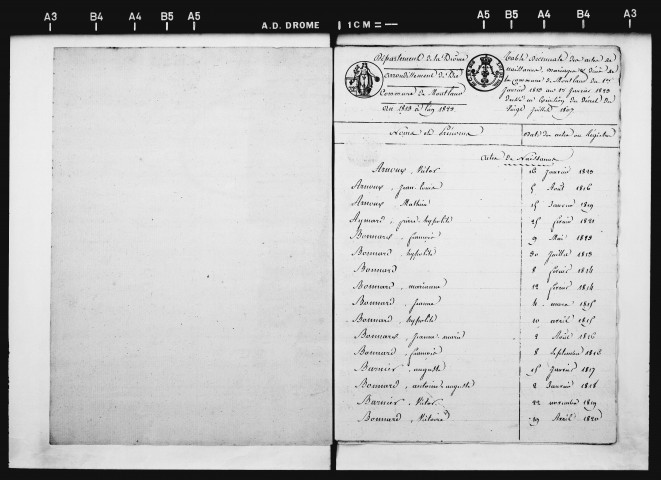 A3 B4 A4 B5 A5 A.D. DROME 1 CM = A5 B5 A4 B4 A3
Département de la Drôme
arrondissement de Die
Commune de Montlaur
an 1813 à l'an 1823
Table Décennale des actes de
naissance, mariages & décès de
la commune de Montlaur du 1er
Janvier 1813 au 1er Janvier 1823
Juillet 1807
Noms et Prénoms
Date des actes au Registre
Actes de Naissance
Arnoux, Victor 16 Janvier 1820
Arnoux, Jean Louis 5 Août 1816
Arnoux Mathieu 15 Janvier 1819
Aymard, pierre hypolite 25 février 1821
Bonnard, françois 9 Mai 1823
Bonnard, hypolite 30 Juillet 1813
Bonnard 8 février 1814
Bonnard, marianne 12 février 1814
Bonnard, Jeanne 4 mars 1815
Bonnard, hypolite 10 avril 1815
Bonnard, Jeanne marie 2 Août 1816
Bonnard, françois 8 Septembre 1816
Barnier, auguste 15 Janvier 1817
Bonnard, antoine auguste 2 Janvier 1818
Barnier, Victor 22 novembre 1819
Bonnard, Victoire 29 Avril 1820